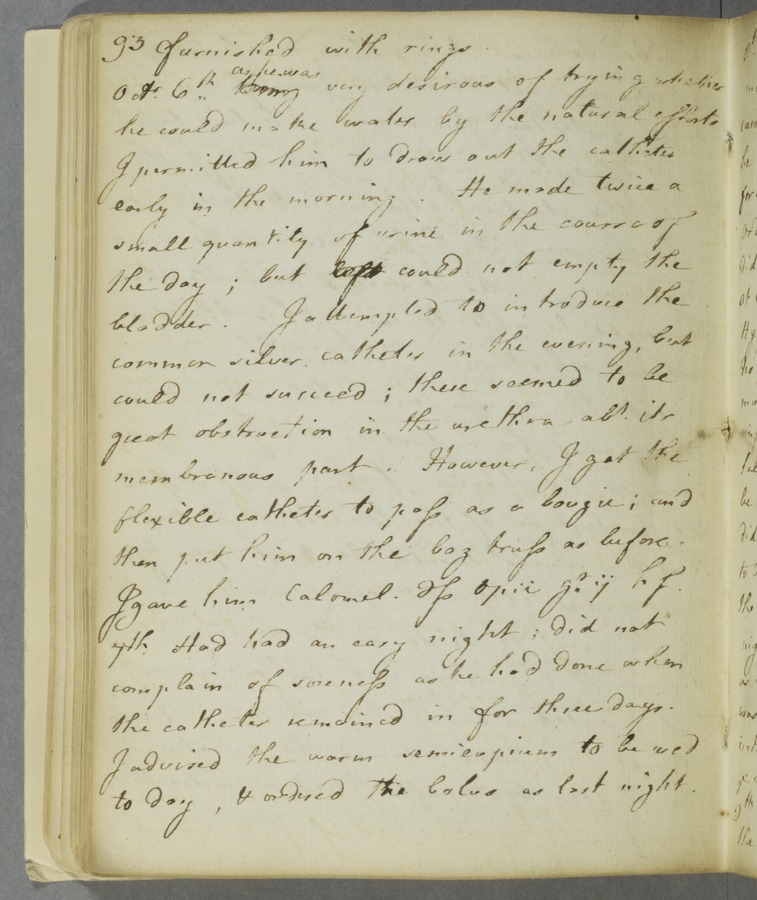 93 furnished with rings.
Octr. 6th. as he was very desirous of trying whether
he could make water by the natural efforts
I permitted him to draw out the catheter
early in the morning. He made twice a
small quantity of urine in the course of
the day; but could not empty the
bladder. I attempted to introduce the
common silver catheter in the evening, but
could not succeed; there seemed to be
great obstruction in the urethra abt. its
membranous part. However, I got the
flexible catheter to pass as a bougie; and
then put him on the bag truss as before.
I gave him Calomel. ʒss opii gr. ij h. s.
7th. Had had an easy night; did not
complain of soreness as he had done when
the catheter remained in for three days.
I advised the warm semicupium to be used
to day, & ordered the bolus as last night.